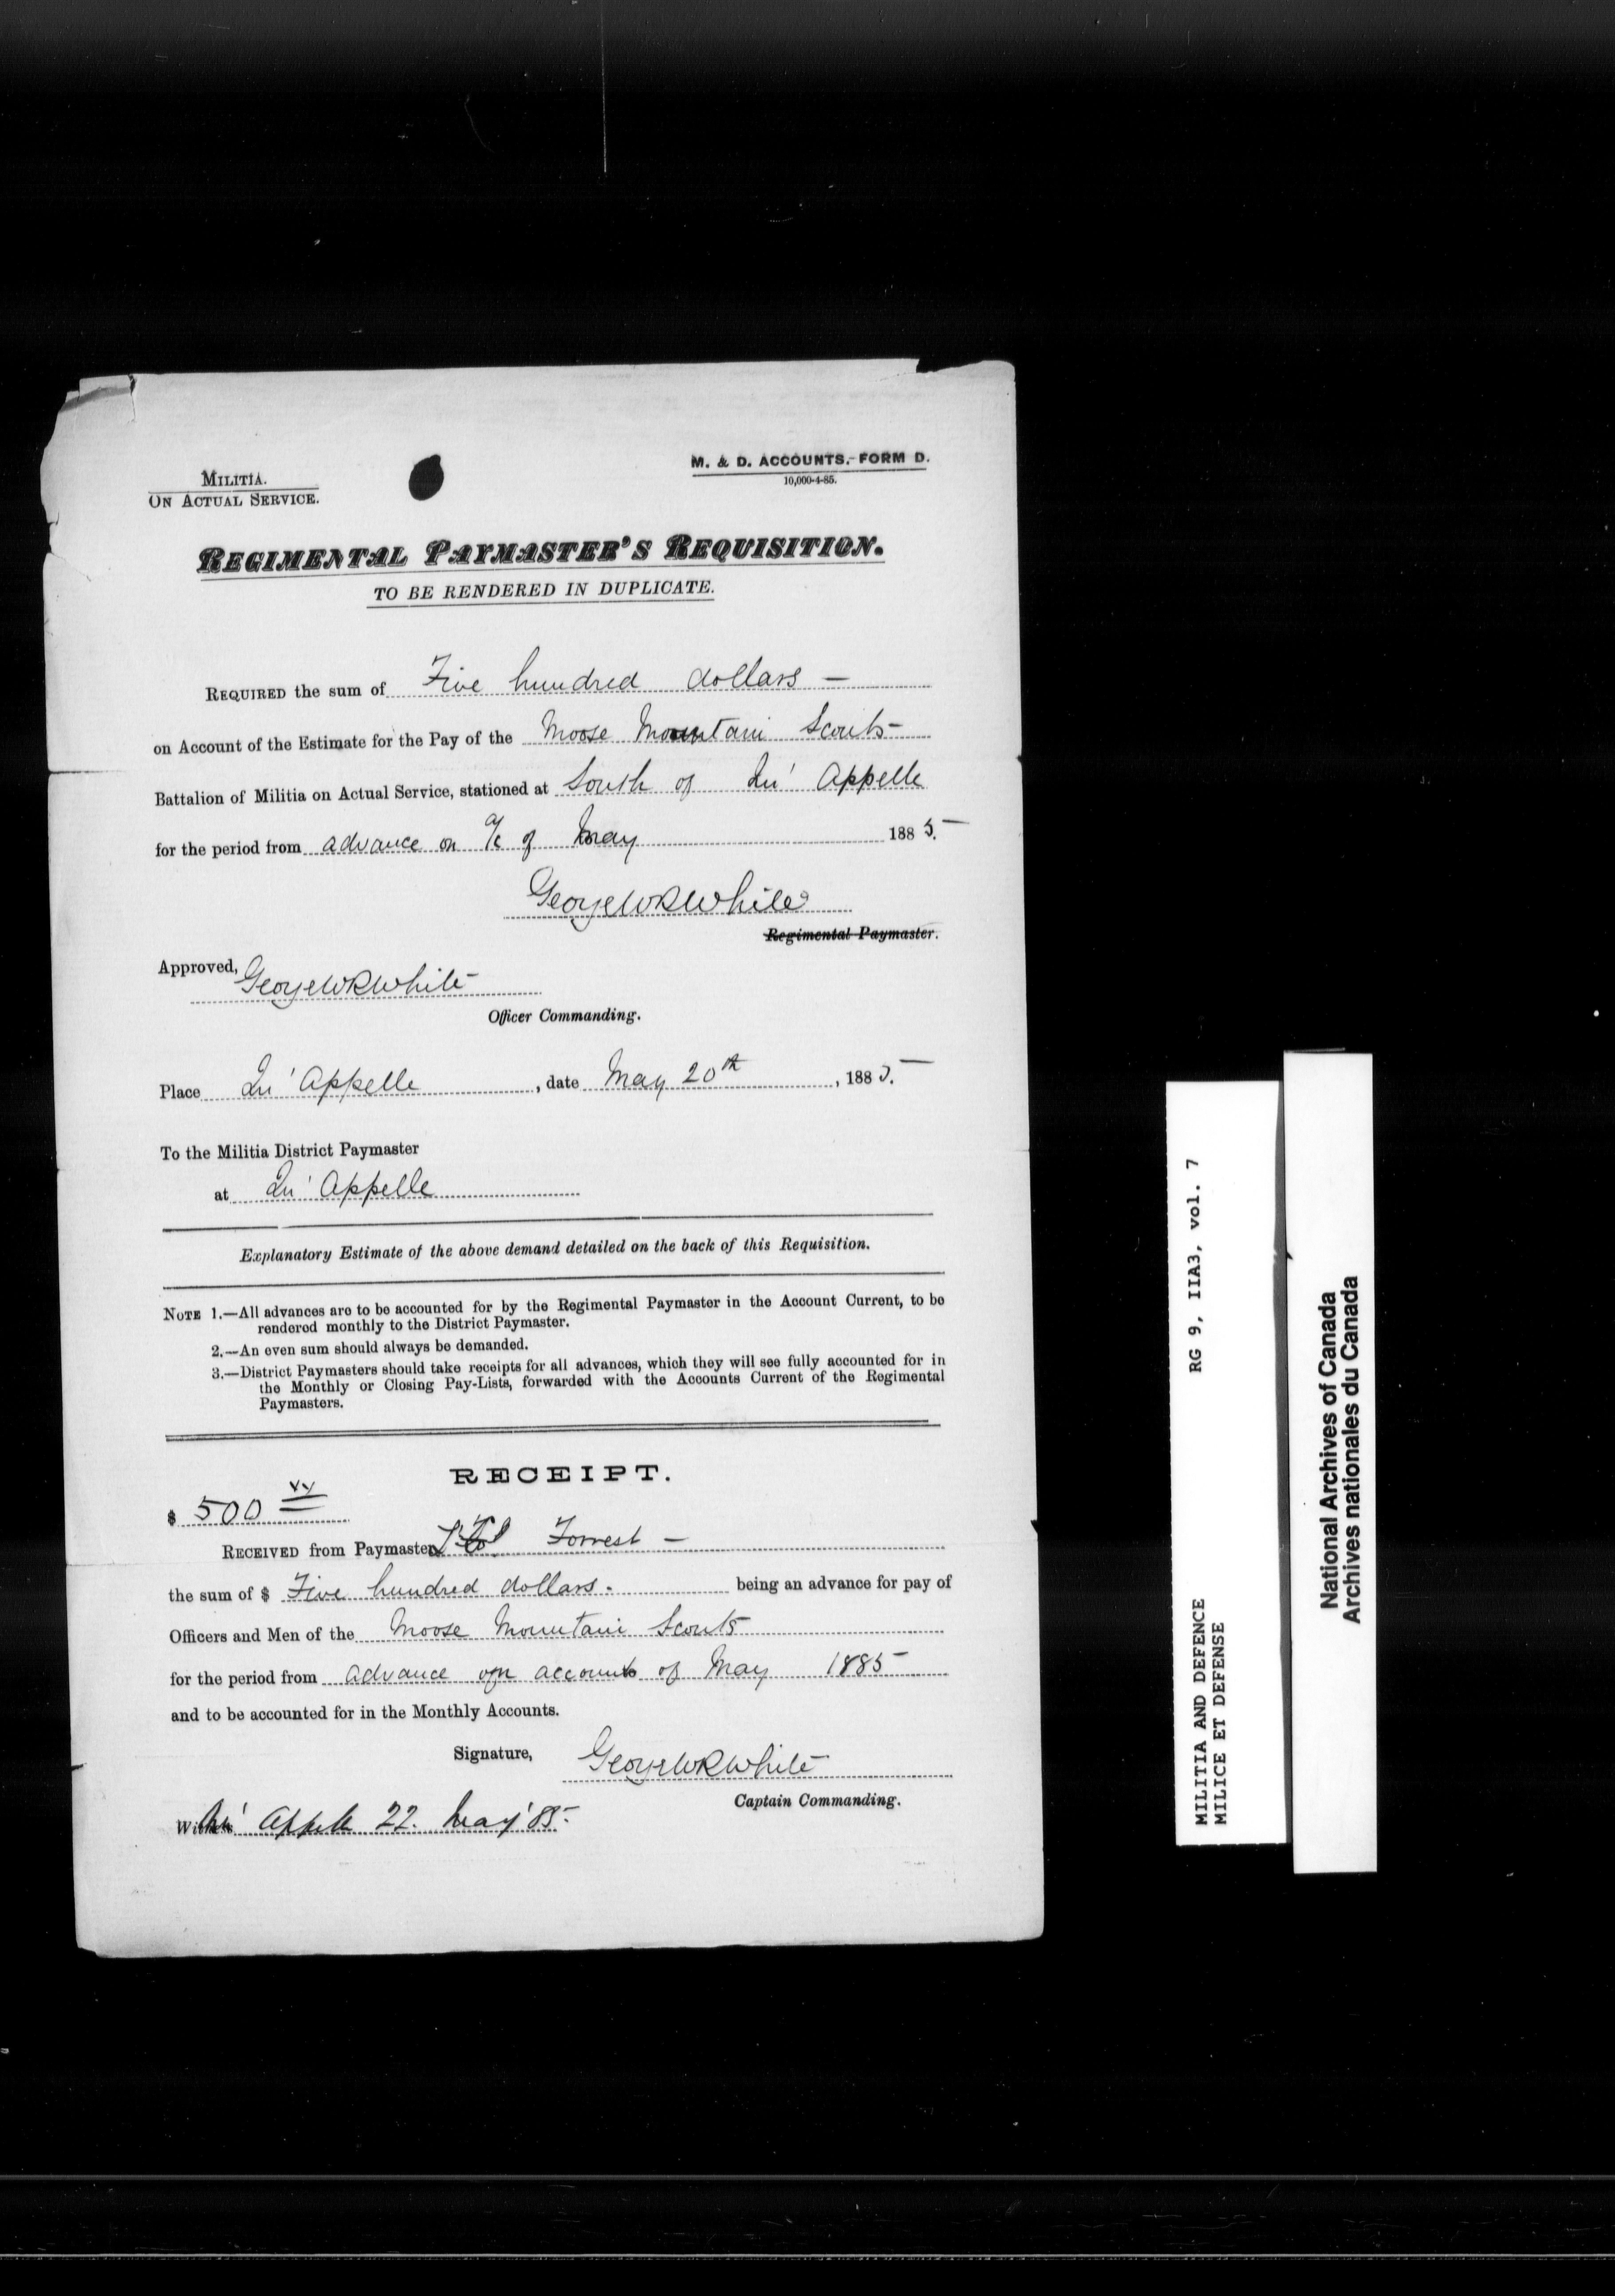 MILITIA.
ON ACTUAL SERVICE.
M. & D. ACCOUNTS.—FORM D.
10,000-4-85.
REGIMENTAL PAYMASTER'S REQUISITION.
TO BE RENDERED IN DUPLICATE.
REQUIRED the sum of Five hundred dollars —
on Account of the Estimate for the Pay of the Moose Mountain Scouts
Battalion of Militia on Actual Service, stationed at South of Qu' Appelle
for the period from advance on a/c of May 1885.
George W R White
Regimental Paymaster.
Approved, George W R White
Officer Commanding.
Place Qu' Appelle, date May 20th, 1885.
To the Militia District Paymaster
at Qu' Appelle
Explanatory Estimate of the above demand detailed on the back of this Requisition.
NOTE 1.—All advances are to be accounted for by the Regimental Paymaster in the Account Current, to be
rendered monthly to the District Paymaster.
2.—An even sum should always be demanded.
3.—District Paymasters should take receipts for all advances, which they will see fully accounted for in
the Monthly or Closing Pay-Lists, forwarded with the Accounts Current of the Regimental
Paymasters.
RECEIPT.
$ 500 xx
RECEIVED from Paymaster Lt Col Forrest —
the sum of $ Five hundred dollars. being an advance for pay of
Officers and Men of the Moose Mountain Scouts
for the period from advance on account of May 1885
and to be accounted for in the Monthly Accounts.
Signature, George W R White
Captain Commanding.
Witness Qu' Appelle 22. May '85.
RG 9, IIA3, vol. 7
MILITIA AND DEFENCE
MILICE ET DEFENSE
National Archives of Canada
Archives nationales du Canada